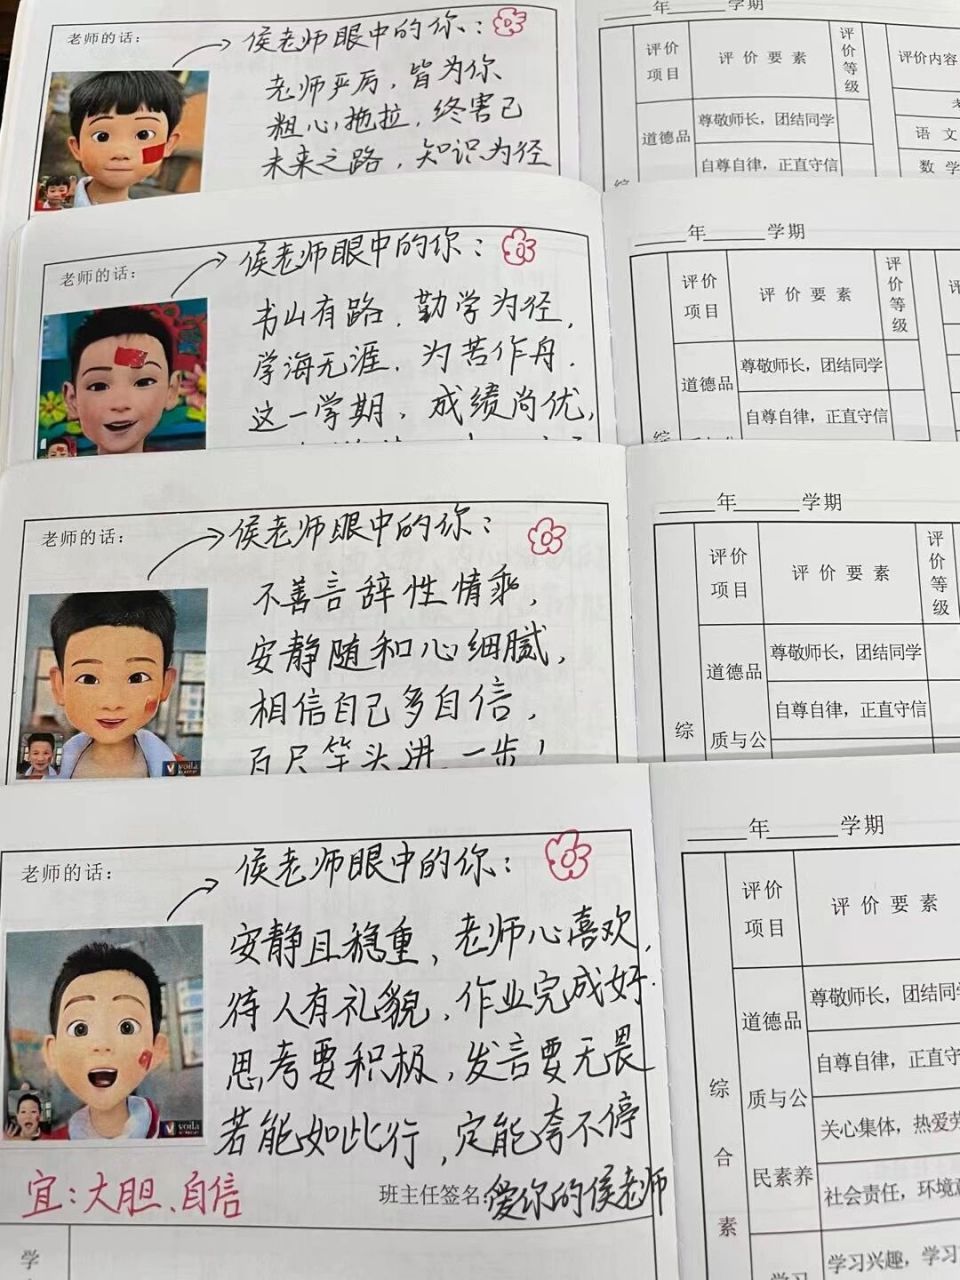 年 学期
老师的话：
侯老师眼中的你：
老师严厉，皆为你
粗心拖拉，终害己
未来之路，知识为径
评价项目
评价要素
评价等级
评价内容
道德品
尊敬师长，团结同学
自尊自律，正直守信
语文
数学
综
年 学期
老师的话：
侯老师眼中的你：
书山有路，勤学为径，
学海无涯，为苦作舟.
这一学期，成绩尚优，
评价项目
评价要素
评价等级
道德品
尊敬师长，团结同学
自尊自律，正直守信
综
年 学期
老师的话：
侯老师眼中的你：
不善言辞性情乖，
安静随和心细腻，
相信自己多自信，
百尺竿头进一步！
voila
评价项目
评价要素
评价等级
道德品
质与公
尊敬师长，团结同学
自尊自律，正直守信
综
年 学期
老师的话：
侯老师眼中的你：
安静且稳重，老师心喜欢，
待人有礼貌，作业完成好.
思考要积极，发言要无畏
若能如此行，定能夸不停
voila
宜：大胆、自信
班主任签名：爱你的侯老师
学
评价项目
评价要素
综合素
道德品
质与公
民素养
尊敬师长，团结同学
自尊自律，正直守
关心集体，热爱劳
社会责任，环境意
学习兴趣，学习